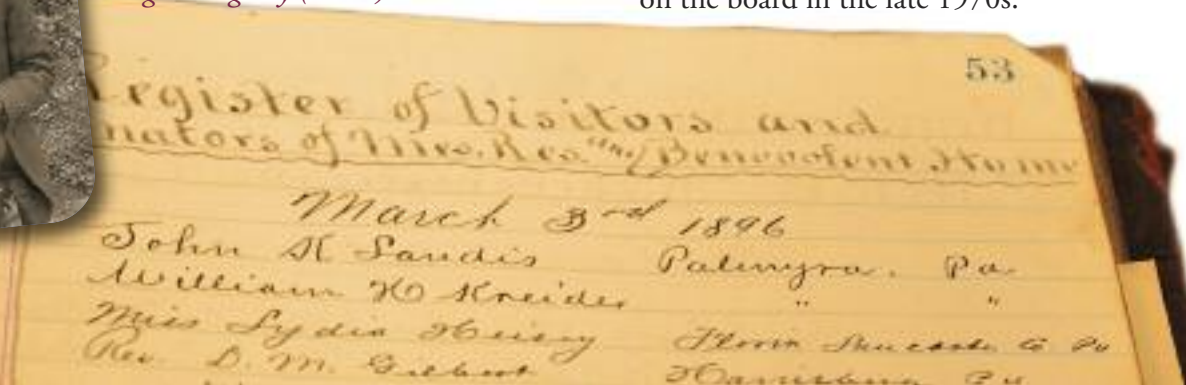 on the board in the late 1970s.
53
Register of Visitors and
nators of Mrs. Benevolent Home
March 3rd 1896
John H Landis Palmyra. Pa.
William H Kreider " "
Miss Lydia Heisey Florin Lancaster Co Pa
Rev. D. M. Gilbert Harrisburg Pa